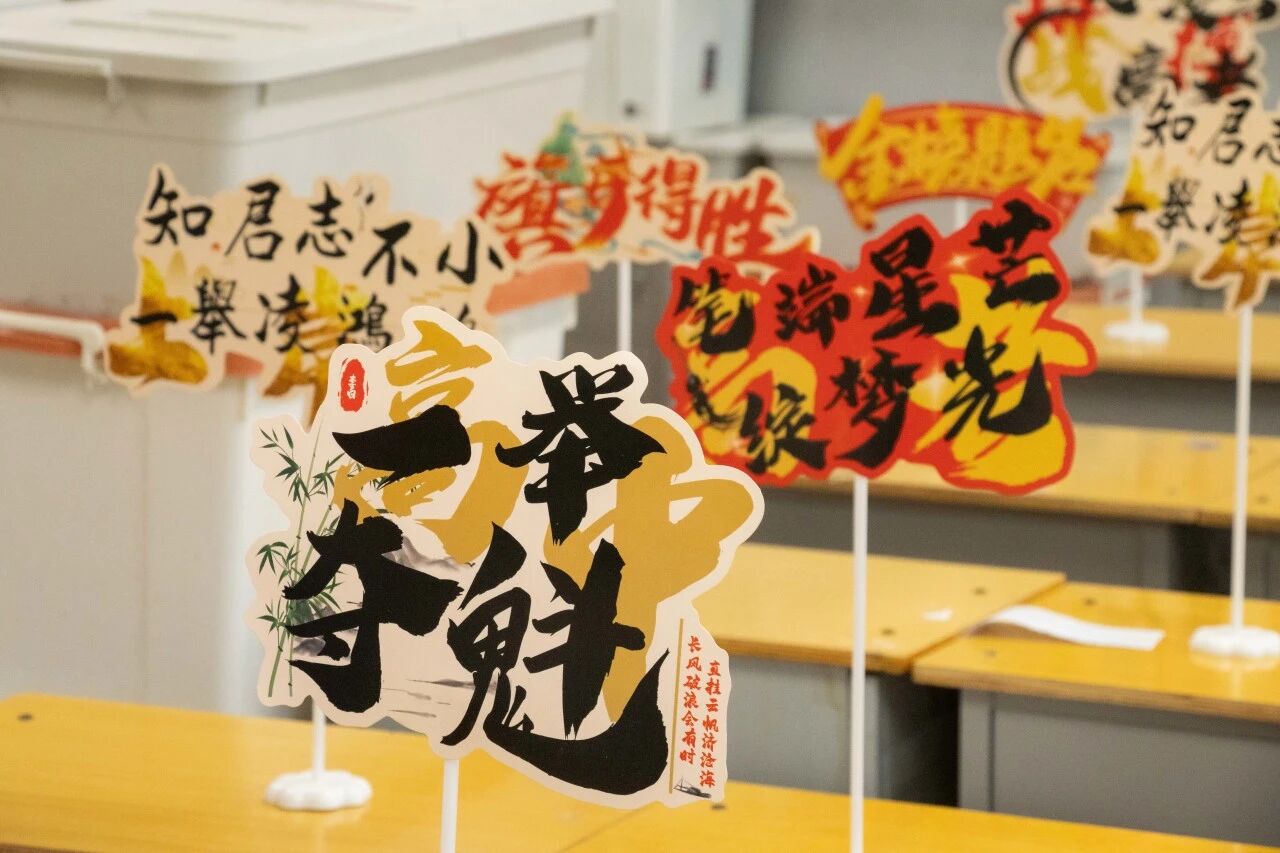 知君志不小
一舉凌鴻
旗开得胜
金榜题名
知君志
一舉凌
笔端星芒
绽梦光
李白
高中
一举
夺魁
长风破浪会有时
直挂云帆济沧海